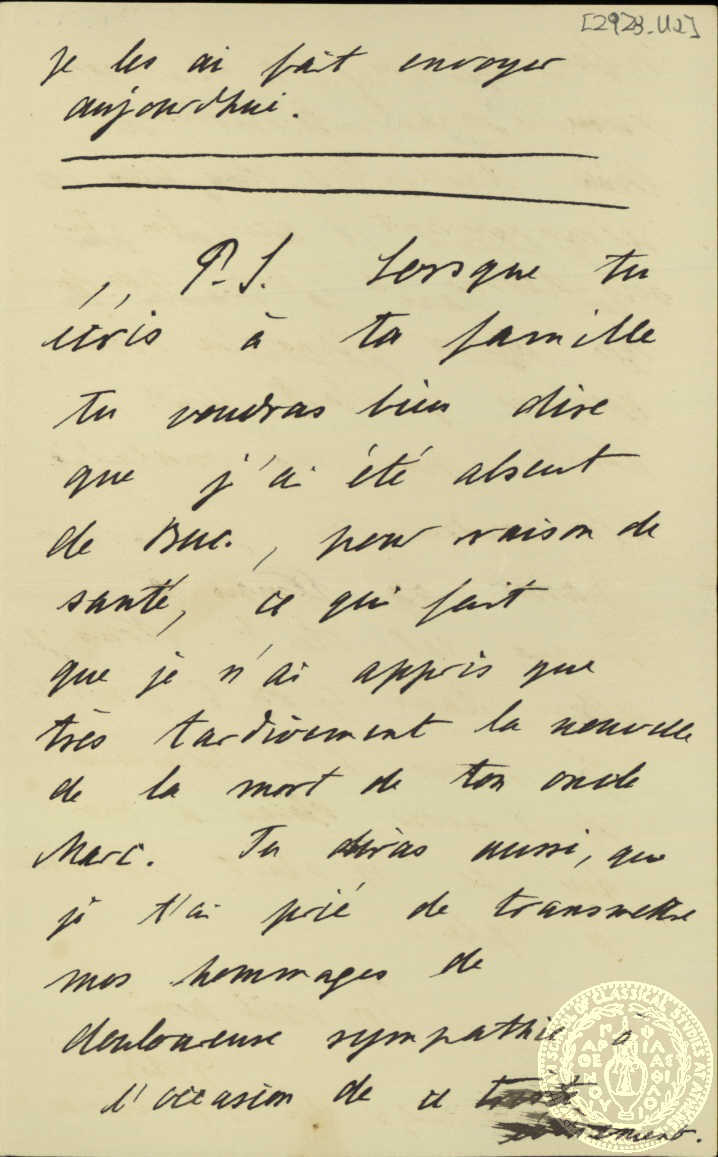 [2923.U2]
je les ai fait envoyer
aujourdhui.
P.S. Lorsque tu
écris à ta famille
tu voudras bien dire
que j'ai été absent
de Buc., pour raison de
santé, ce qui fait
que je n'ai appris que
très tardivement la nouvelle
de la mort de ton oncle
Marc. Tu diras aussi, que
je t'ai prié de transmettre
mes hommages de
douloureuse sympathie à
l'occasion de ce triste
événement.